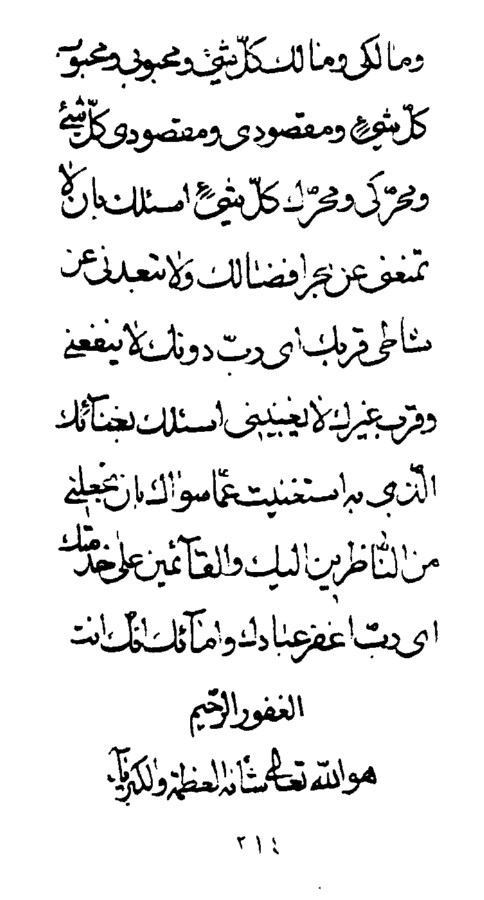 ومالكی ومالك كلّ شیء ومحبوبی ومحبوب
كلّ شیءٍ ومقصودی ومقصودی كلّ شیءٍ
ومحرّكی ومحرّك كلّ شیءٍ اسئلك بان لا
تمنعنی عن بحر افضالك ولا تبعدنی عن
شاطی قربك ای ربّ دونك لا ینفعنی
وقرب غیرك لا یغنینی اسئلك بغنآئك
الّذی به استغنیت عمّا سواك بان تجعلنی
من النّاظرین الیك والقآئمین علی خدمتك
ای ربّ اغفر عبادك وامآئك انّك انت
الغفور الرّحیم
هو اللّه تعالی شأنه العظمة والكبریآء
٢١٤